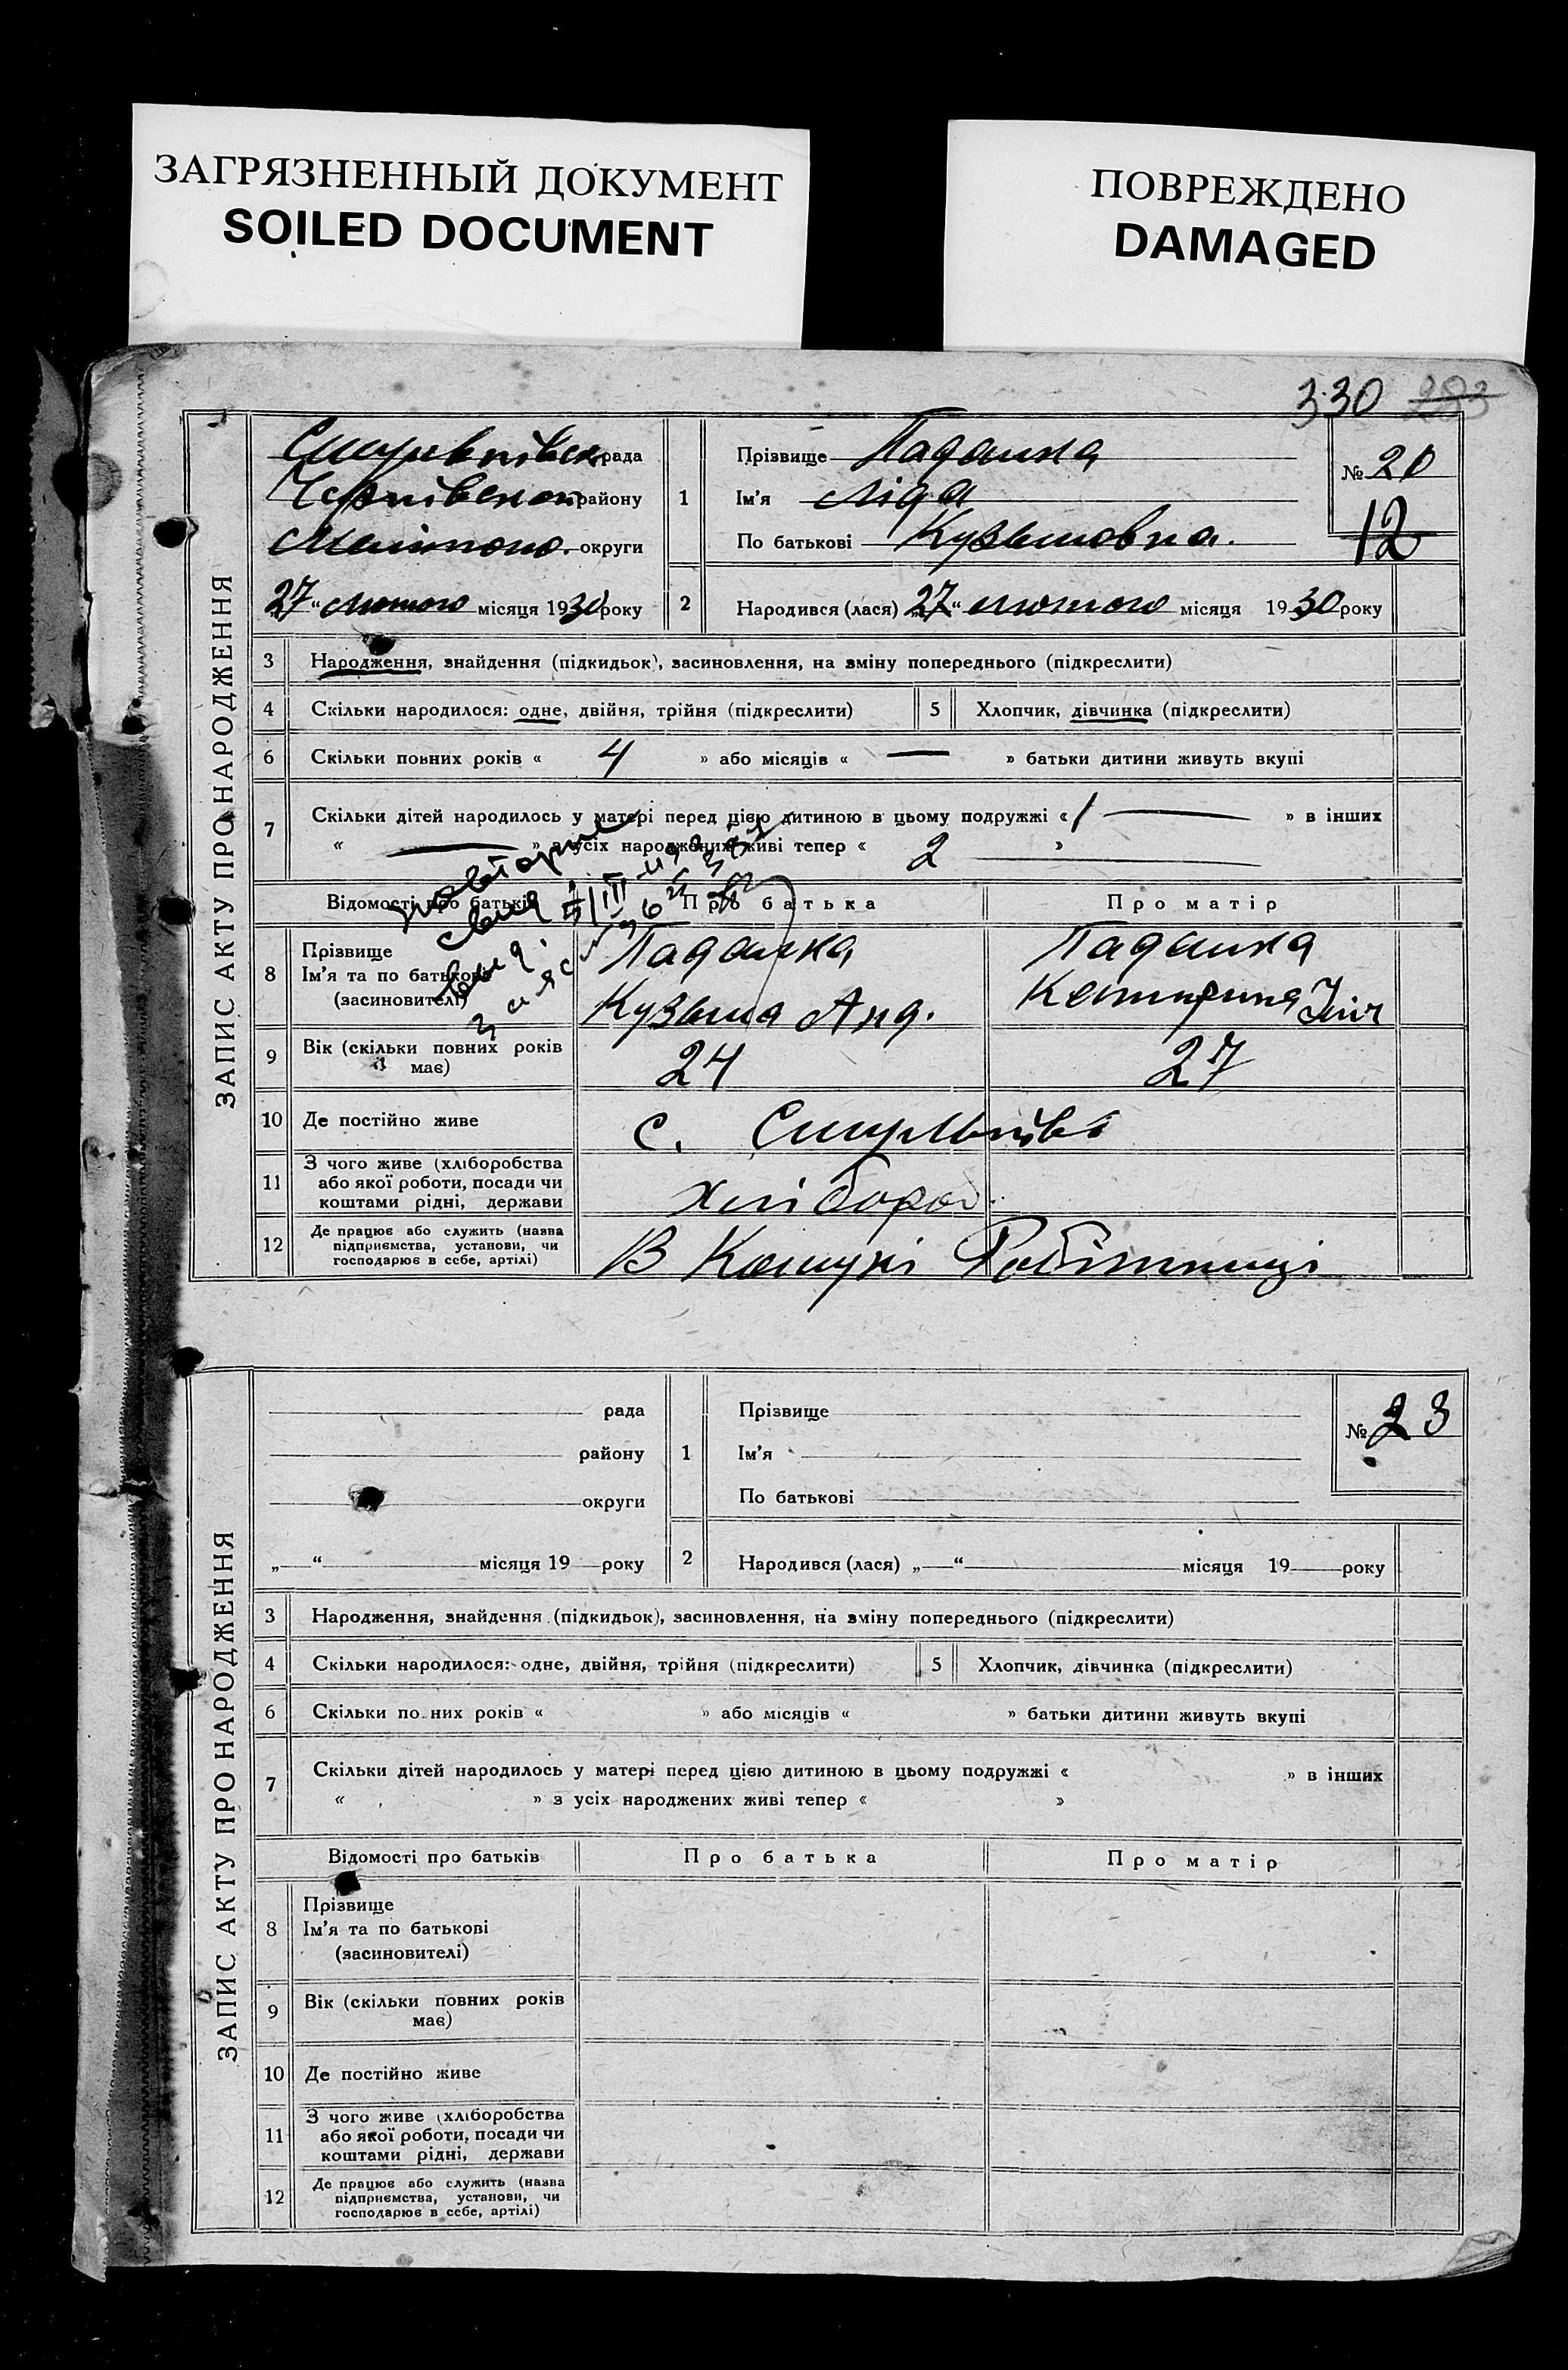 ЗАГРЯЗНЕННЫЙ ДОКУМЕНТ
SOILED DOCUMENT
ПОВРЕЖДЕНО
DAMAGED
330 283
ЗАПИС АКТУ ПРО НАРОДЖЕННЯ
рада
району
округи
27 “ лютого місяця 1930 року
1
Прізвище Падалка
Ім'я Ліда
По батькові Кузьмовна.
№ 20
12
2
Народився (лася) „27“ лютого місяця 1930 року
3 Народження, знайдення (підкидьок), засиновлення, на зміну попереднього (підкреслити)
4 Скільки народилося: одне, двійня, трійня (підкреслити) 5 Хлопчик, дівчинка (підкреслити)
6 Скільки повних років « 4 » або місяців « — » батьки дитини живуть вкупі
7 Скільки дітей народилось у матері перед цією дитиною в цьому подружжі « 1 — » в інших
« — » з усіх народжених живі тепер « 2 — »
Відомості про батьків Про батька Про матір
8 Прізвище
Ім'я та по батькові
(засиновителі)
Падалка
Кузьма Анд.
Падалка
Катирина
9 Вік (скільки повних років
має)
24 27
10 Де постійно живе с.
11 З чого живе (хліборобства
або якої роботи, посади чи
коштами рідні, держави
хлібороб.
12 Де працює або служить (назва
підприємства, установи, чи
господарює в себе, артілі)
В Комуні Робітниці
ЗАПИС АКТУ ПРО НАРОДЖЕННЯ
рада
району
округи
„ “ місяця 19 року
1
Прізвище
Ім'я
По батькові
№ 23
2
Народився (лася) „ “ місяця 19 року
3 Народження, знайдення (підкидьок), засиновлення, на зміну попереднього (підкреслити)
4 Скільки народилося: одне, двійня, трійня (підкреслити) 5 Хлопчик, дівчинка (підкреслити)
6 Скільки повних років « » або місяців « » батьки дитини живуть вкупі
7 Скільки дітей народилось у матері перед цією дитиною в цьому подружжі « » в інших
« » з усіх народжених живі тепер « »
Відомості про батьків Про батька Про матір
8 Прізвище
Ім'я та по батькові
(засиновителі)
9 Вік (скільки повних років
має)
10 Де постійно живе
11 З чого живе (хліборобства
або якої роботи, посади чи
коштами рідні, держави
12 Де працює або служить (назва
підприємства, установи, чи
господарює в себе, артілі)